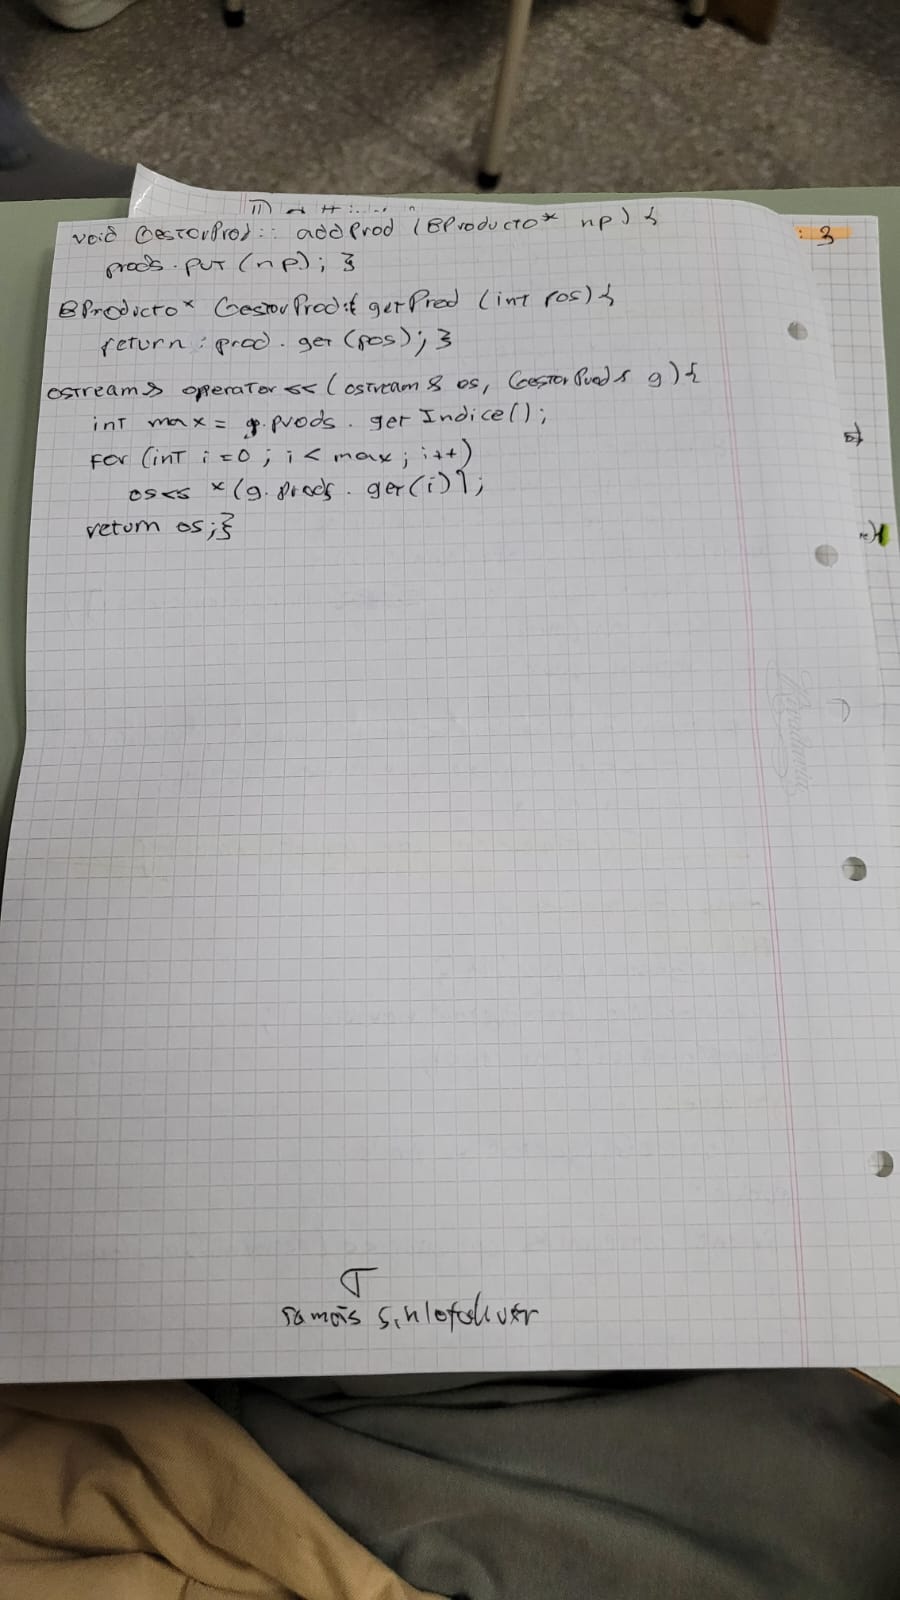 void GestorProd:: addProd (BProducto* np) {
prods.put (np); }
BProducto* GestorProd:: getProd (int pos) {
return : prod. get (pos); }
ostream& operator << (ostream & os, GestorProd & g) {
int max = g.prods. get Indice();
for (int i=0; i < max; i++)
os << *(g. prods. get(i));
return os; }
: 3